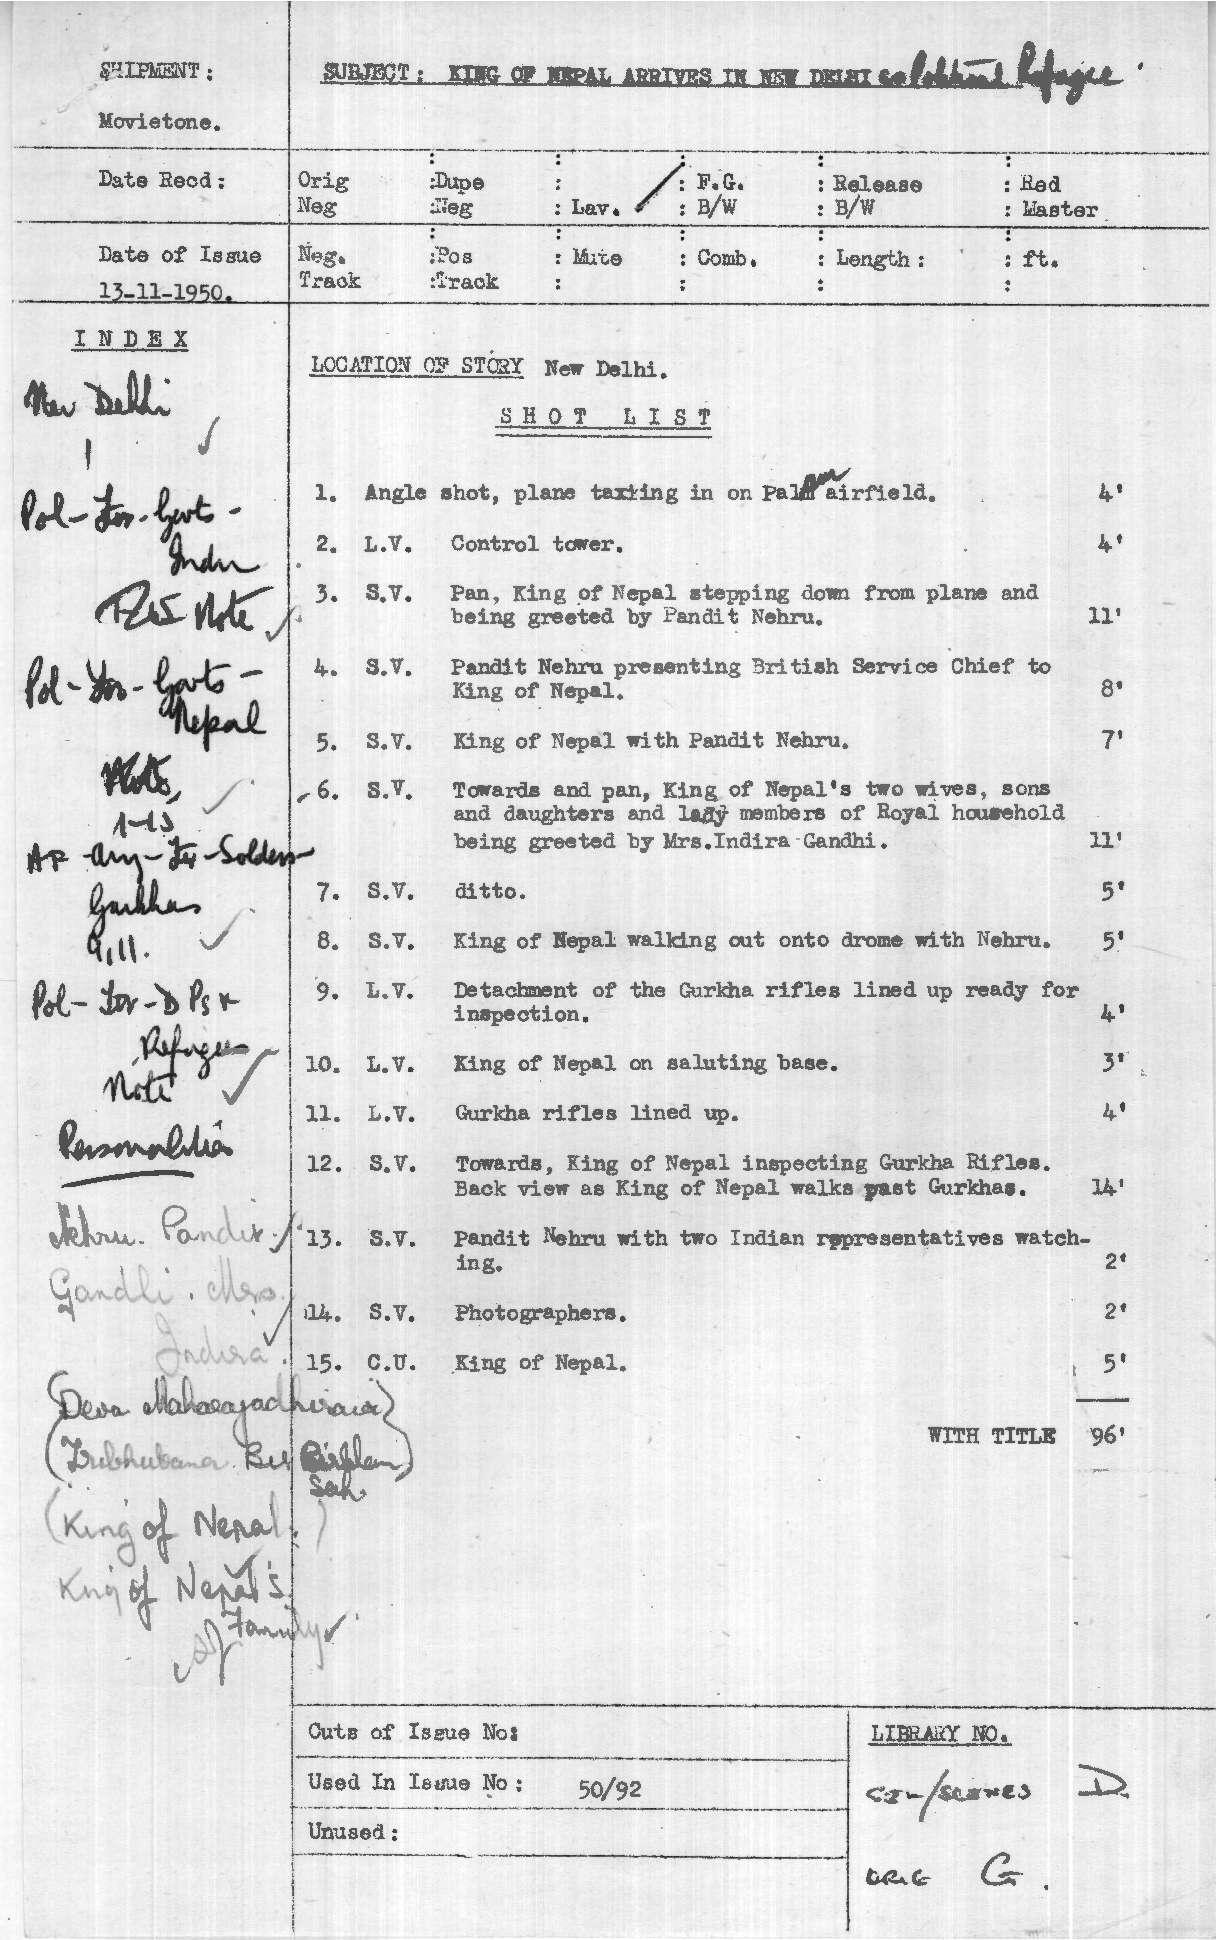 SHIPMENT:
Movietone.
SUBJECT: KING OF NEPAL ARRIVES IN NEW DELHI as Political Refugee.
Date Recd:
Orig :Dupe : : F.G. : Release : Red
Neg :Neg : Lav. : B/W : B/W : Master
Date of Issue
13-11-1950.
Neg. :Pos : Mute : Comb. : Length: : ft.
Track :Track : : : :
INDEX
New Delhi
1
Pol-For-Govts-
India
Note
Pol-For-Govts-
Nepal
1-15
AF-Army-For-Soldiers-
Gurkhas
9,11.
Pol-For-DPs &
Refugees
Note
Personalities
Nehru. Pandit.
Gandhi. Mrs.
Indira.
(Deva Maharajadhiraja)
(Tribhubana Bir Bikram
Sah.)
(King of Nepal.)
King of Nepal's
Family
LOCATION OF STORY New Delhi.
SHOT LIST
1. Angle shot, plane taxiing in on Palam airfield. 4'
2. L.V. Control tower. 4'
3. S.V. Pan, King of Nepal stepping down from plane and
being greeted by Pandit Nehru. 11'
4. S.V. Pandit Nehru presenting British Service Chief to
King of Nepal. 8'
5. S.V. King of Nepal with Pandit Nehru. 7'
6. S.V. Towards and pan, King of Nepal's two wives, sons
and daughters and lady members of Royal household
being greeted by Mrs.Indira Gandhi. 11'
7. S.V. ditto. 5'
8. S.V. King of Nepal walking out onto drome with Nehru. 5'
9. L.V. Detachment of the Gurkha rifles lined up ready for
inspection. 4'
10. L.V. King of Nepal on saluting base. 3'
11. L.V. Gurkha rifles lined up. 4'
12. S.V. Towards, King of Nepal inspecting Gurkha Rifles.
Back view as King of Nepal walks past Gurkhas. 14'
13. S.V. Pandit Nehru with two Indian representatives watch-
ing. 2'
14. S.V. Photographers. 2'
15. C.U. King of Nepal. 5'
WITH TITLE 96'
Cuts of Issue No:
Used In Issue No: 50/92
Unused:
LIBRARY NO.
CIN/SCENES D.
ORIG G.